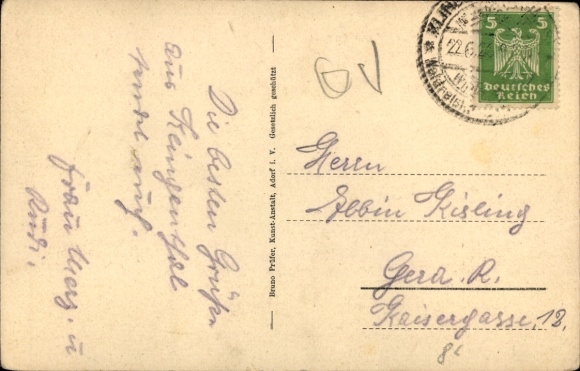 Die besten Grüße
aus Klingenthal
sendet euch
Frau Merz. u
Rudi.
Bruno Prüfer, Kunst-Anstalt, Adorf i. V. Gesetzlich geschützt
5 5
Deutsches
Reich
KLING
22.6.
Herrn
Albin Kisling
Gera. R.
Kaisergasse, 18.